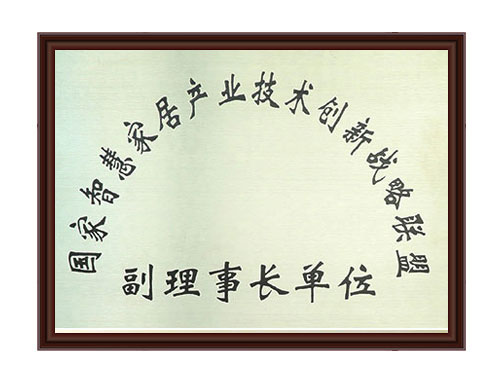 国家智慧家居产业技术创新战略联盟
副理事长单位